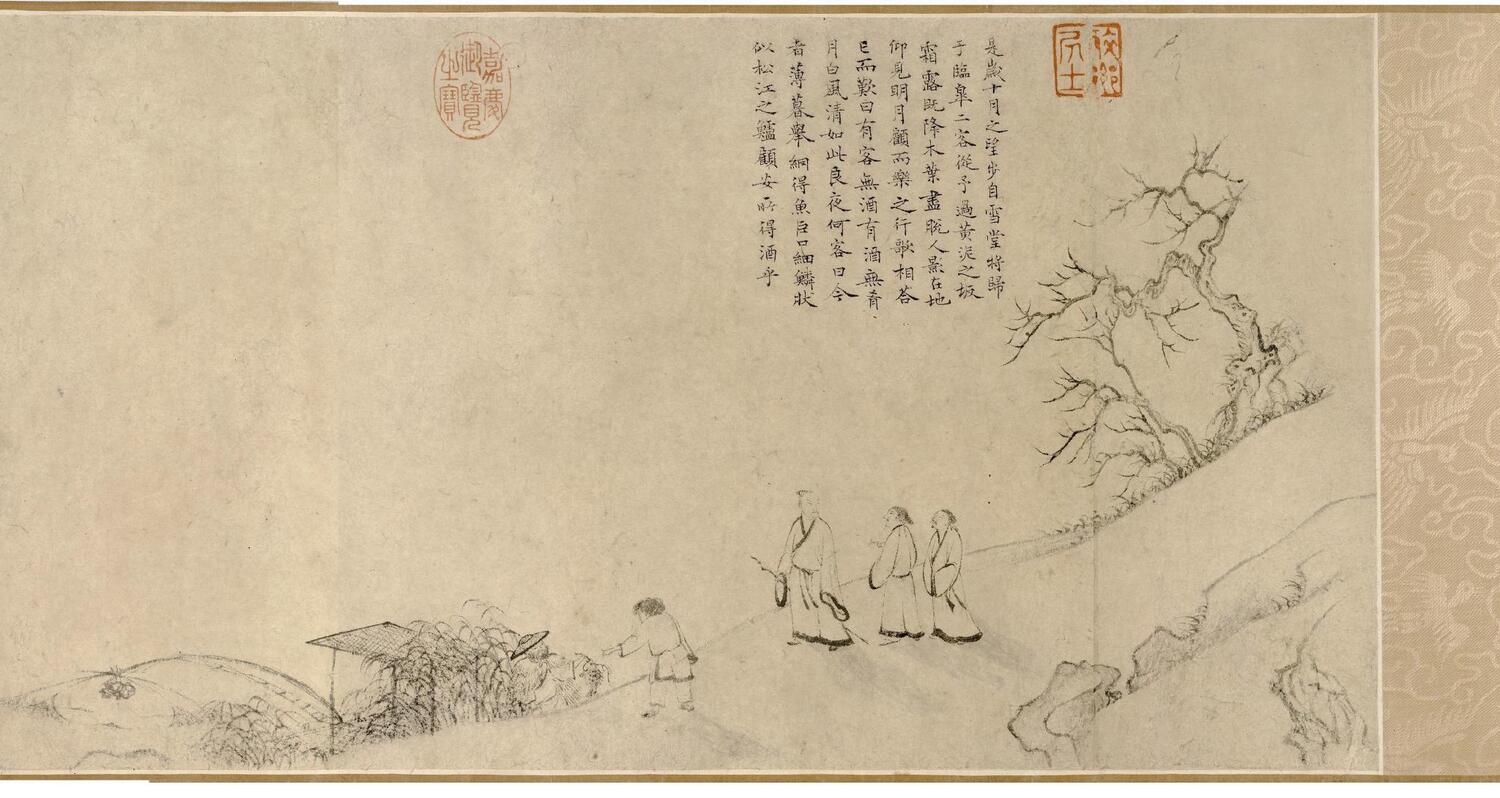 是歲十月之望步自雪堂將歸
于臨皋二客從予過黃泥之坂
霜露既降木葉盡脫人影在地
仰見明月顧而樂之行歌相荅
已而歎曰有客無酒有酒無肴
月白風清如此良夜何客曰今
者薄暮舉網得魚巨口細鱗狀
似松江之鱸顧安所得酒乎
嘉慶御覽之寶